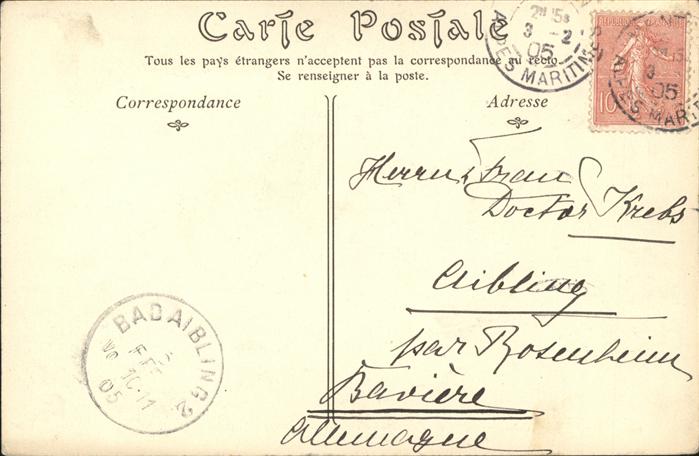 Carte Postale
Tous les pays étrangers n'acceptent pas la correspondance au recto.
Se renseigner à la poste.
Correspondance
Adresse
3 - 2
05
ALPES MARITIMES
RÉPUBLIQUE
10
3
05
ALPES MARITIMES
Herrn & Frau
Doctor Krebs
Aibling
par Rosenheim
Bavière
Allemagne
BAD AIBLING 2
5
FEB
10-11
05